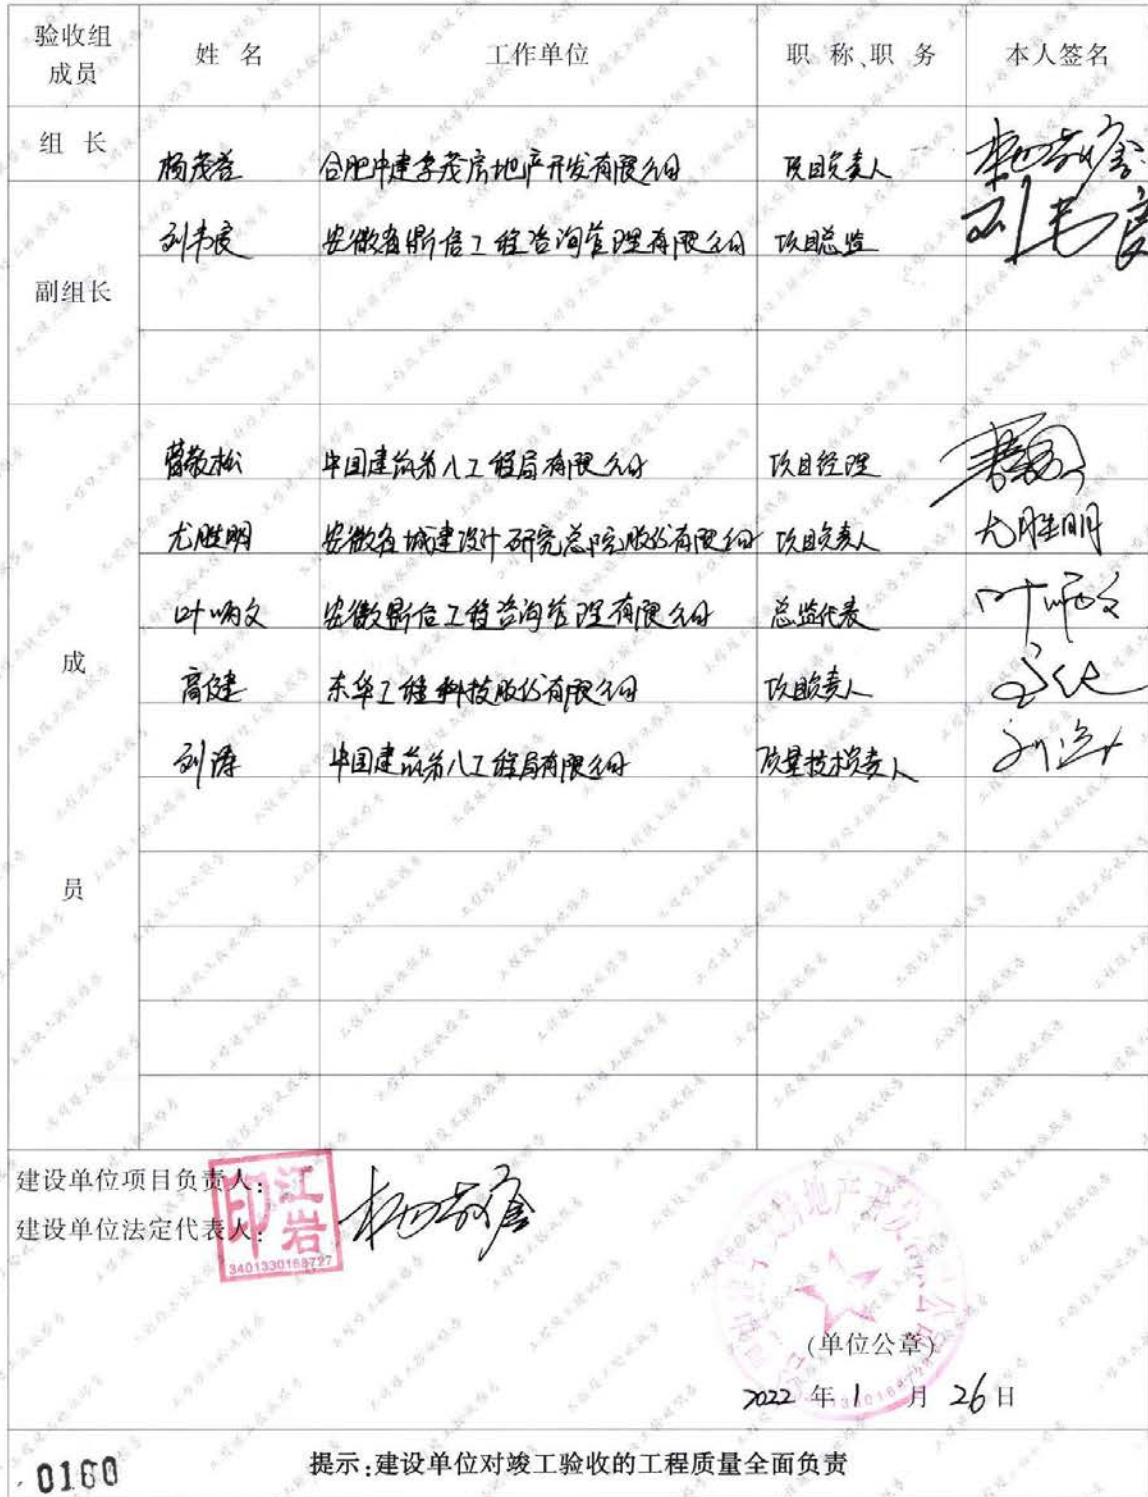 验收组
成员 姓 名 工作单位 职 称、职 务 本人签名
组 长 杨茂荟 合肥中建孚茂房地产开发有限公司 项目负责人
刘韦良 安徽省鼎信工程咨询管理有限公司 项目总监 刘韦良
副组长
敬松 中国建筑第八工程局有限公司 项目经理
尤胜明 安徽省城建设计研究总院股份有限公司 项目负责人 尤胜明
叶炳文 安徽鼎信工程咨询管理有限公司 总监代表 叶炳文
成
高健 东华工程科技股份有限公司 项目负责人
刘涛 中国建筑第八工程局有限公司 质量技术负责人 刘涛
员
建设单位项目负责人:
建设单位法定代表人:
江岩印
3401330168727
(单位公章)
2022 年 1 月 26 日
0160 提示:建设单位对竣工验收的工程质量全面负责